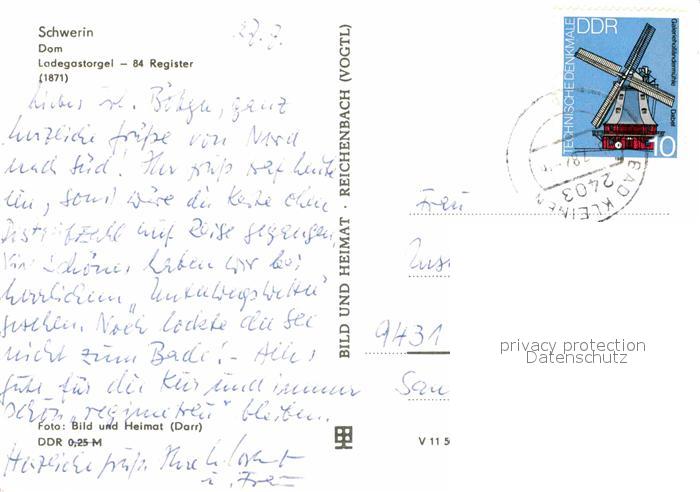 Schwerin
Dom
Ladegastorgel – 84 Register
(1871)
27. 7.
ganz
herzliche Grüße von Nord
nach Süd! Ihr heute
ein, sonst wäre die Karte ohne
auf Reise gegangen.
Viel Schönes haben wir bei
herrlichem „Unterwegswetter"
gesehen. Noch lockte die See
nicht zum Bade! - Alles
Gute für die Kur und immer
schön „regimetreu" bleiben.
Herzliche Grüße Ihre
u. Frau
Foto: Bild und Heimat (Darr)
DDR 0,25 M
BILD UND HEIMAT · REICHENBACH (VOGTL)
V 11 5
TECHNISCHE DENKMALE
DDR
Galerieholländermühle Dabel
10
2403 BAD KLEINEN
Frau
9431
privacy protection
Datenschutz